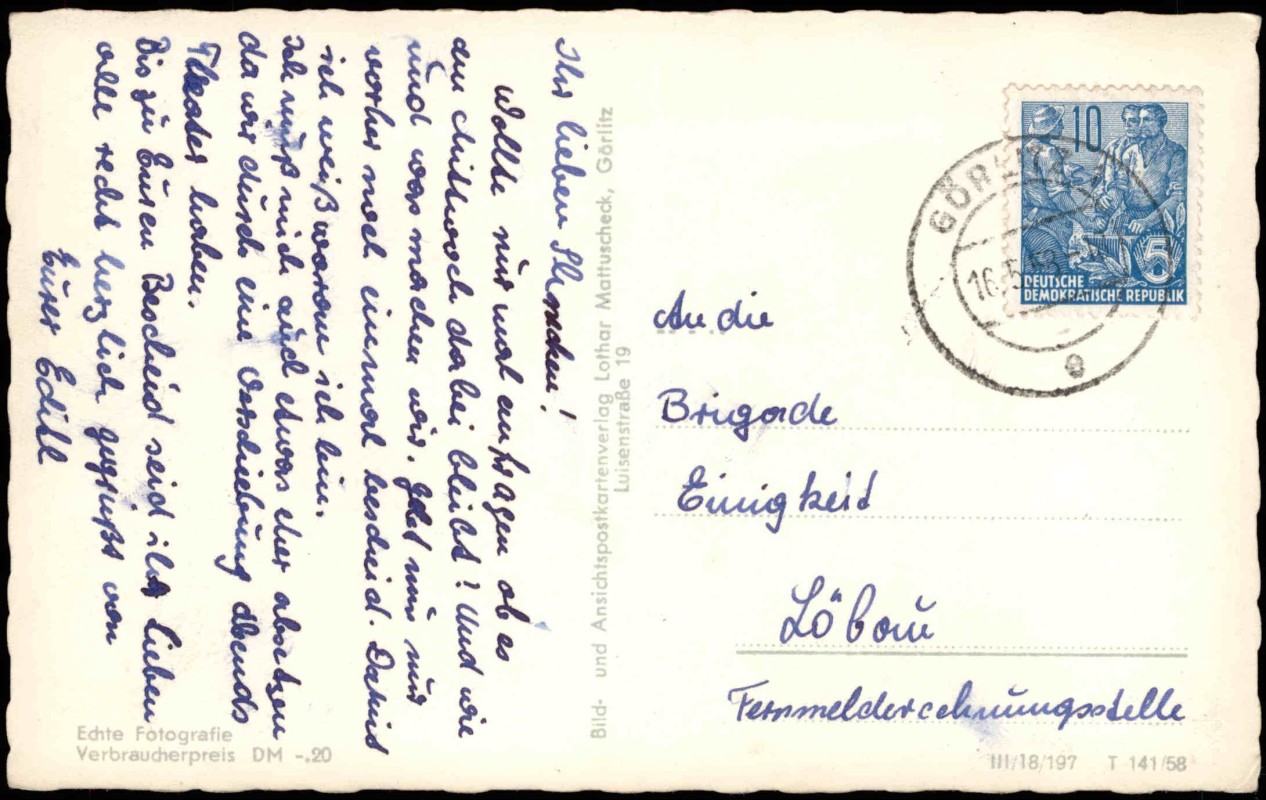 Ihr lieben
Wollte nur mal anfragen ob es
am Mittwoch dabei bleibt! Und wie
und was machen wir. Gebt mir nur
vorher noch einmal bescheid. Damit
ich weiß woran ich bin.
Ich muß mich auch etwas eher absetzen
da wir durch eine Verschiebung abends
Theater haben.
Bis zu Euren Bescheid seid ihr lieben
alle recht herzlich gegrüßt von
Eurer Edith
Echte Fotografie
Verbraucherpreis DM -.20
Bild- und Ansichtspostkartenverlag Lothar Mattuscheck, Görlitz
Luisenstraße 19
10
5
DEUTSCHE
DEMOKRATISCHE REPUBLIK
GÖRLITZ
16.5.59
e
An die
Brigade
Einigkeit
Löbau
Fernmelderechnungsstelle
III/18/197 T 141/58